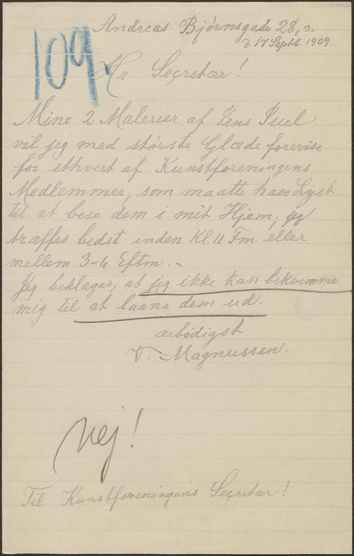 Andreas Bjørnsgade 28,
d 14 Septb. 1909
109
Hr Secretær!
Mine 2 Malerier af Jens Juel
vil jeg med største Glæde forevise
for ethvert af Kunstforeningens
Medlemmer, som maatte have Lyst
til at bese dem i mit Hjem, jeg
træffes bedst inden Kl. 11 Fm. eller
mellem 3-4 Eftm. -
Jeg beklager, at jeg ikke kan bekvemme
mig til at laane dem ud.
ærbødigst
V. Magnussen.
Nej!
Til Kunstforeningens Secretær!